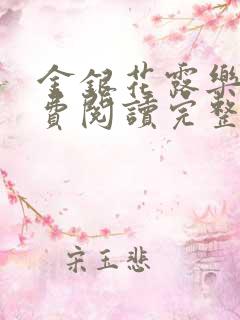 金銀花露樂
費閱讀完整
宋玉悲